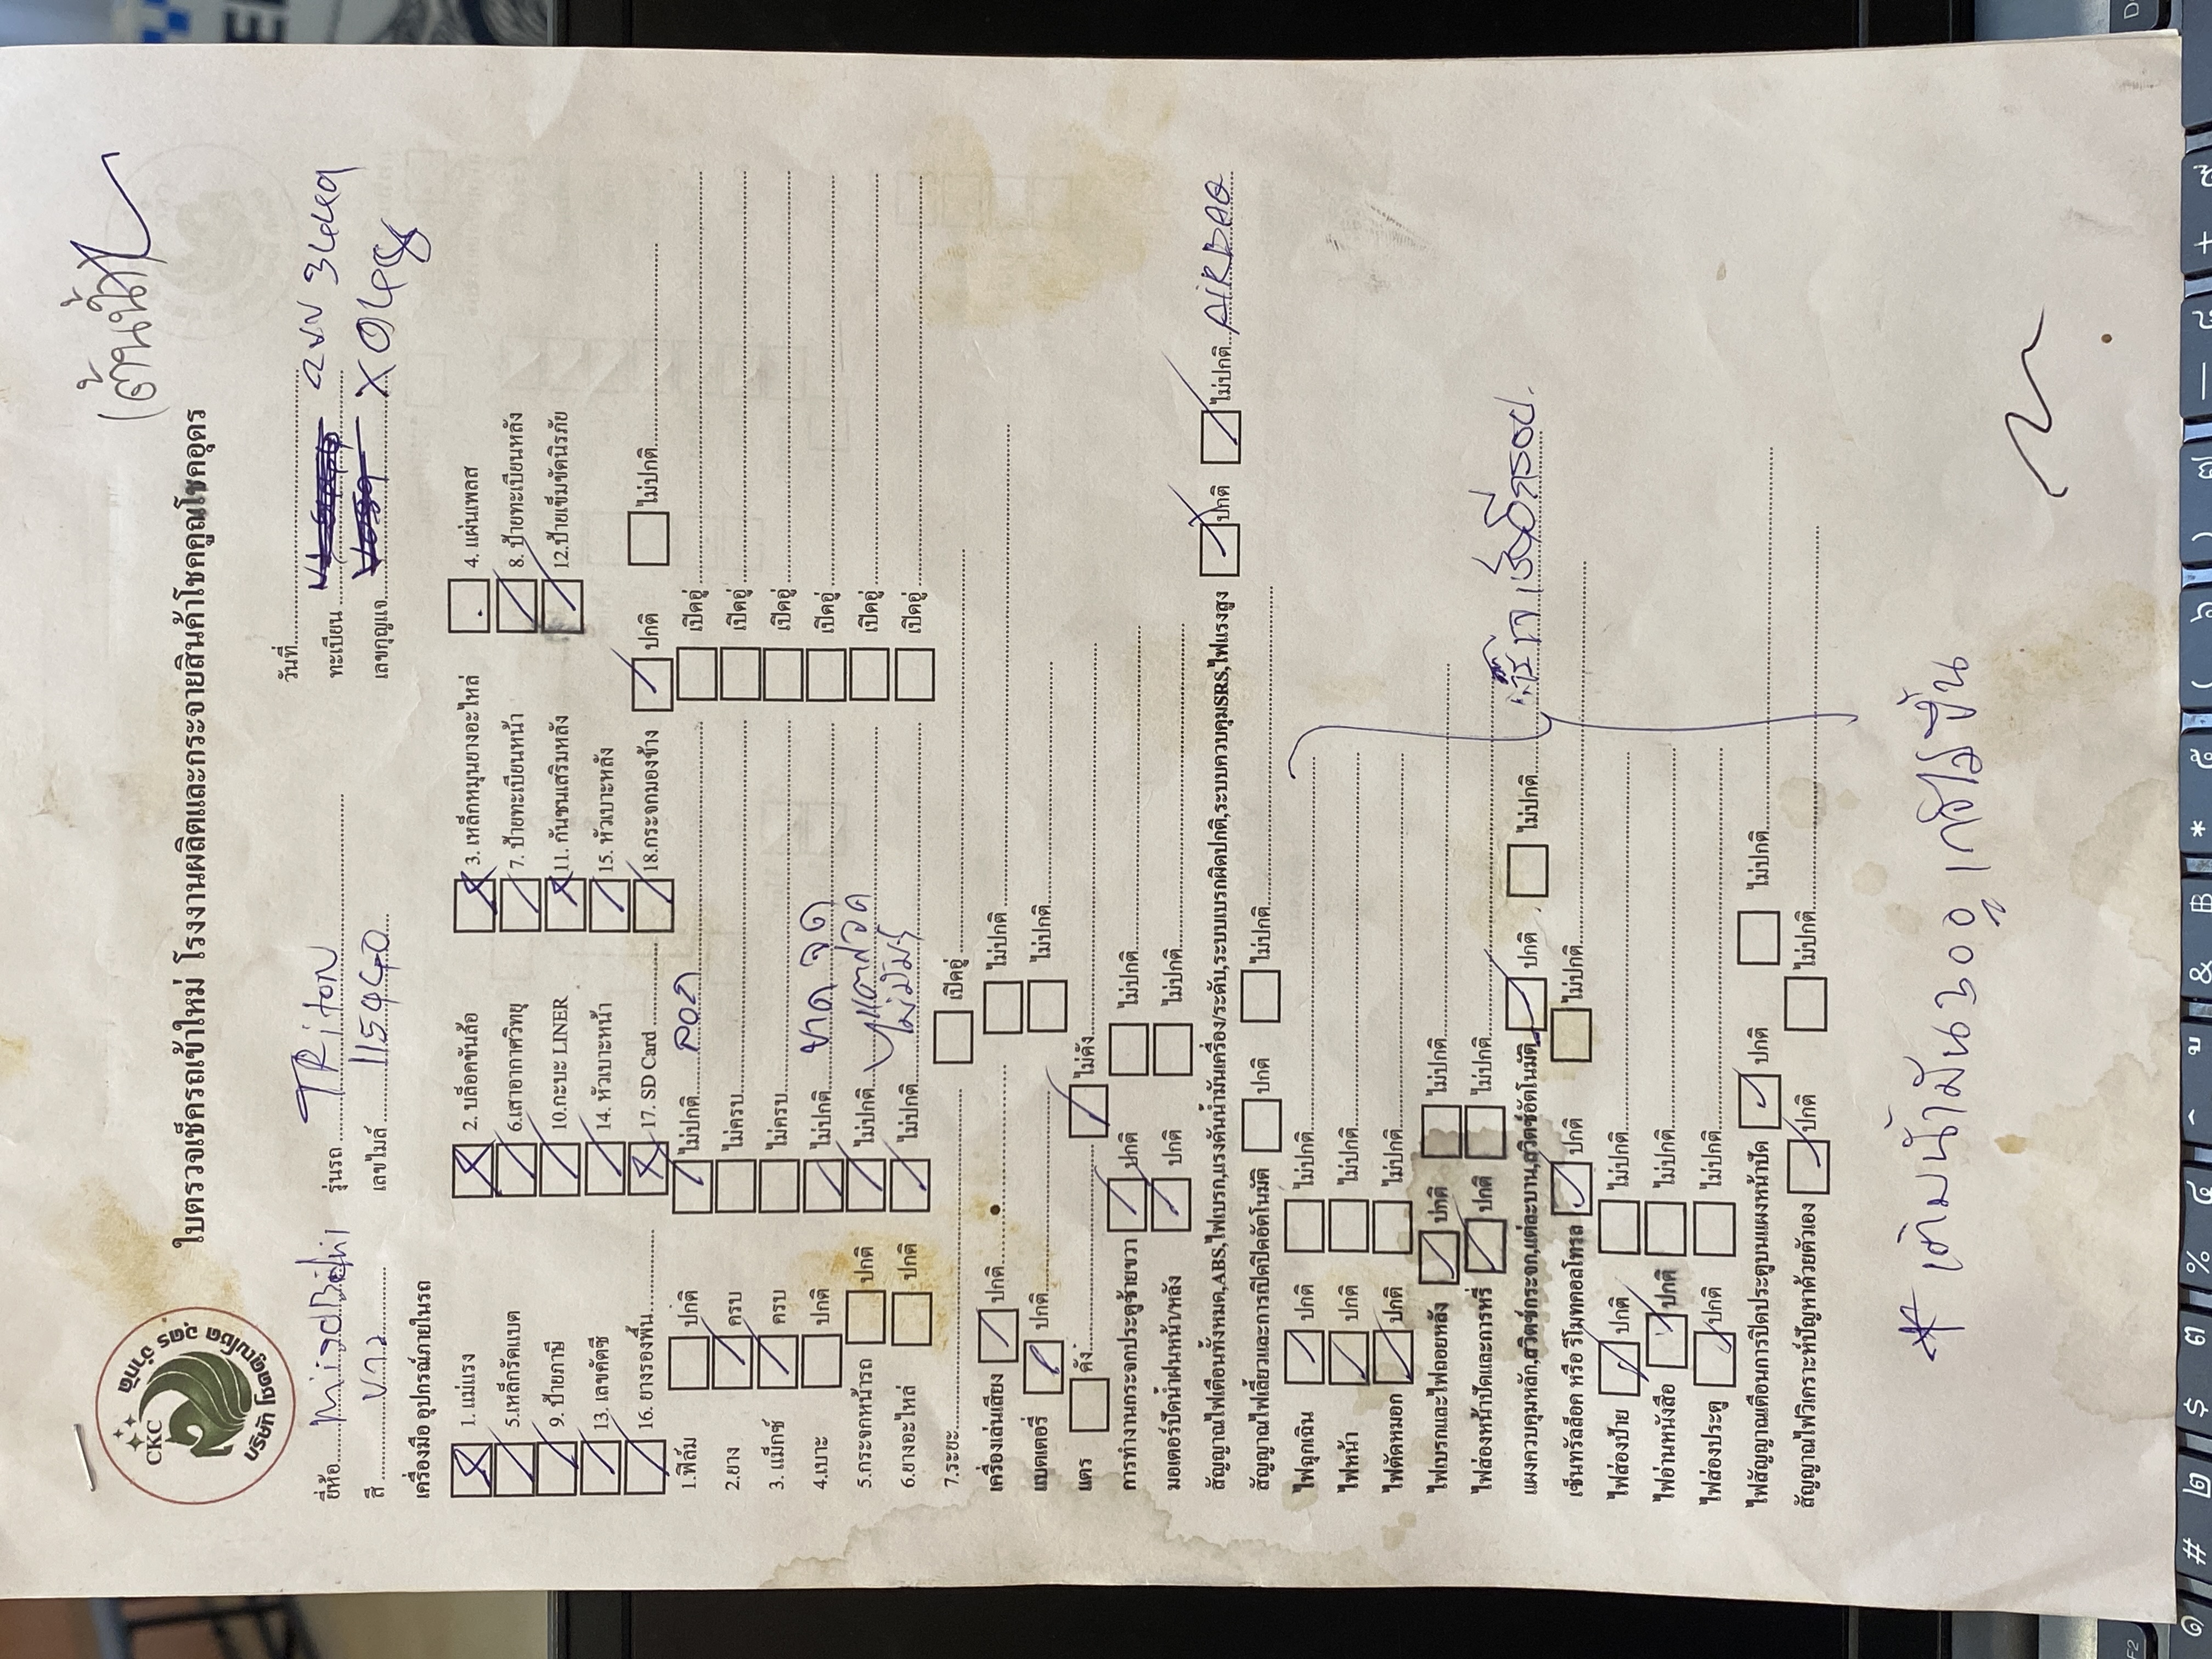 CKC
บริษัท โชคคูณโชค อุดร จำกัด
ใบตรวจเช็ครถเข้าใหม่ โรงงานผลิตและกระจายสินค้าโชคคูณโชคอุดร
วันที่
ยี่ห้อ รุ่นรถ TRiTON ทะเบียน
สี ขาว เลขไมล์ เลขกุญแจ
เครื่องมือ อุปกรณ์ภายในรถ
1. แม่แรง 2. บล็อคขันล้อ 3. เหล็กหมุนยางอะไหล่ 4. แผ่นเพลส
5.เหล็กรัดแบต 6.เสาอากาศวิทยุ 7. ป้ายทะเบียนหน้า 8. ป้ายทะเบียนหลัง
9. ป้ายภาษี 10.กระบะ LINER 11. กันชนเสริมหลัง 12.ป้ายเข็มขัดนิรภัย
13. เลขคัตซี 14. หัวเบาะหน้า 15. หัวเบาะหลัง
16. ยางรองพื้น 17. SD Card 18.กระจกมองข้าง ปกติ ไม่ปกติ
1.ฟิล์ม ปกติ ไม่ปกติ ลอก เปิดอู่
2.ยาง ครบ ไม่ครบ เปิดอู่
3. แม็กซ์ ครบ ไม่ครบ เปิดอู่
4.เบาะ ปกติ ไม่ปกติ ขาด จุด เปิดอู่
5.กระจกหน้ารถ ปกติ ไม่ปกติ เปิดอู่
6.ยางอะไหล่ ปกติ ไม่ปกติ เปิดอู่
7.ระยะ เปิดอู่
เครื่องเล่นเสียง ปกติ ไม่ปกติ
แบตเตอรี่ ปกติ ไม่ปกติ
แตร ดัง ไม่ดัง
การทำงานกระจกประตูซ้ายขวา ปกติ ไม่ปกติ
มอเตอร์ปัดน้ำฝนหน้า/หลัง ปกติ ไม่ปกติ
สัญญาณไฟเตือนทั้งหมด,ABS,ไฟเบรก,แรงดันน้ำมันเครื่อง/ระดับ,ระบบเบรกผิดปกติ,ระบบควบคุมSRS,ไฟแรงสูง ปกติ ไม่ปกติ AIRBAG
สัญญาณไฟเลี้ยวและการเปิดปิดอัตโนมัติ ปกติ ไม่ปกติ
ไฟฉุกเฉิน ปกติ ไม่ปกติ
ไฟหน้า ปกติ ไม่ปกติ
ไฟตัดหมอก ปกติ ไม่ปกติ
ไฟเบรกและไฟถอยหลัง ปกติ ไม่ปกติ
ไฟส่องหน้าปัดและการหรี่ ปกติ ไม่ปกติ
แผงควบคุมหลัก,สวิตซ์กระจก,แต่ละบาน,สวิตซ์อัตโนมัติ ปกติ ไม่ปกติ
เซ็นทรัลล็อค หรือ รีโมทคอลโทรล ปกติ ไม่ปกติ
ไฟส่องป้าย ปกติ ไม่ปกติ
ไฟอ่านหนังสือ ปกติ ไม่ปกติ
ไฟส่องประตู ปกติ ไม่ปกติ
ไฟสัญญาณเตือนการปิดประตูบนแผงหน้าปัด ปกติ ไม่ปกติ
สัญญาณไฟวิเคราะห์ปัญหาด้วยตัวเอง ปกติ ไม่ปกติ
* เติมน้ำมัน 300 เกจไม่ขึ้น